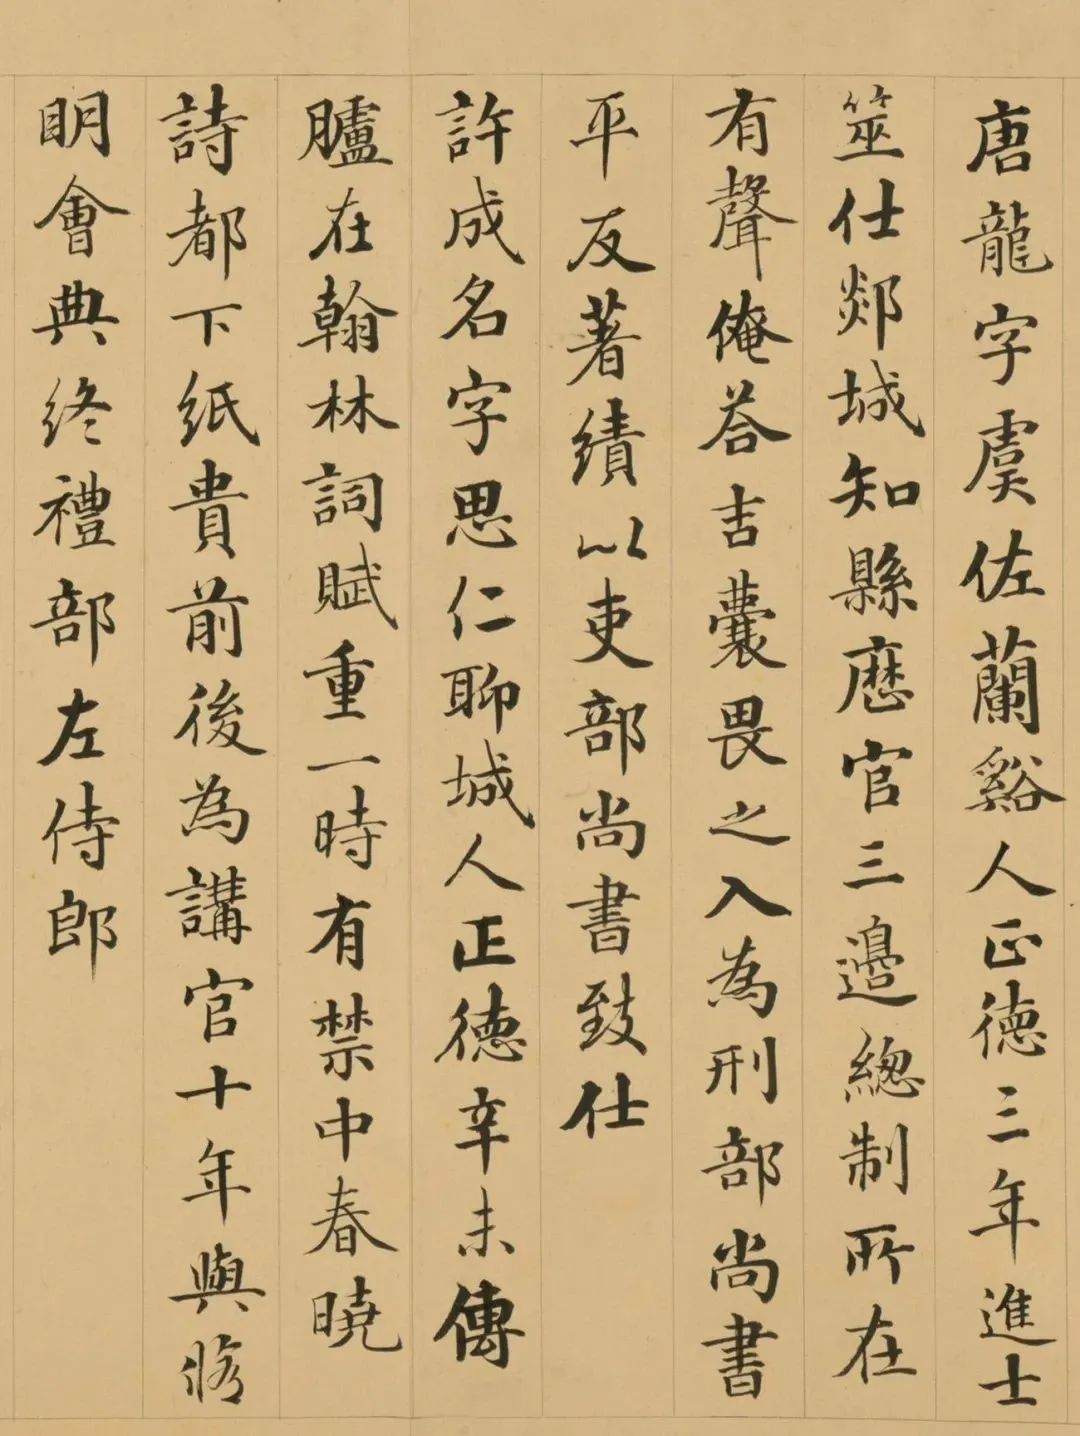 唐龍字虞佐蘭谿人正德三年進士
筮仕郯城知縣歷官三邊總制所在
有聲俺荅吉囊畏之入為刑部尚書
平反著績以吏部尚書致仕
許成名字思仁聊城人正德辛未傳
臚在翰林詞賦重一時有禁中春曉
詩都下紙貴前後為講官十年與脩
明會典終禮部左侍郎